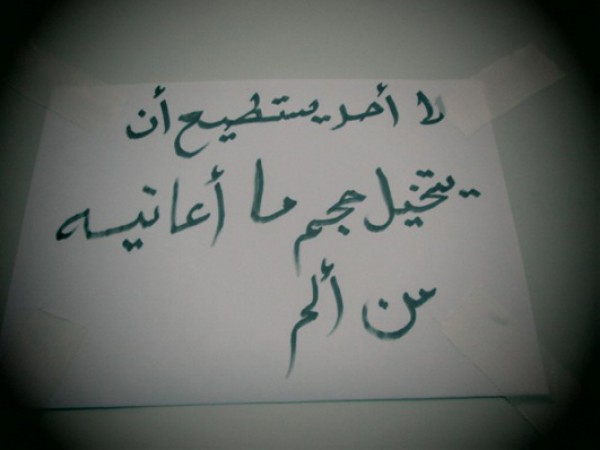 لا أحد يستطيع أن
يتخيل حجم ما أعانيه
من ألم